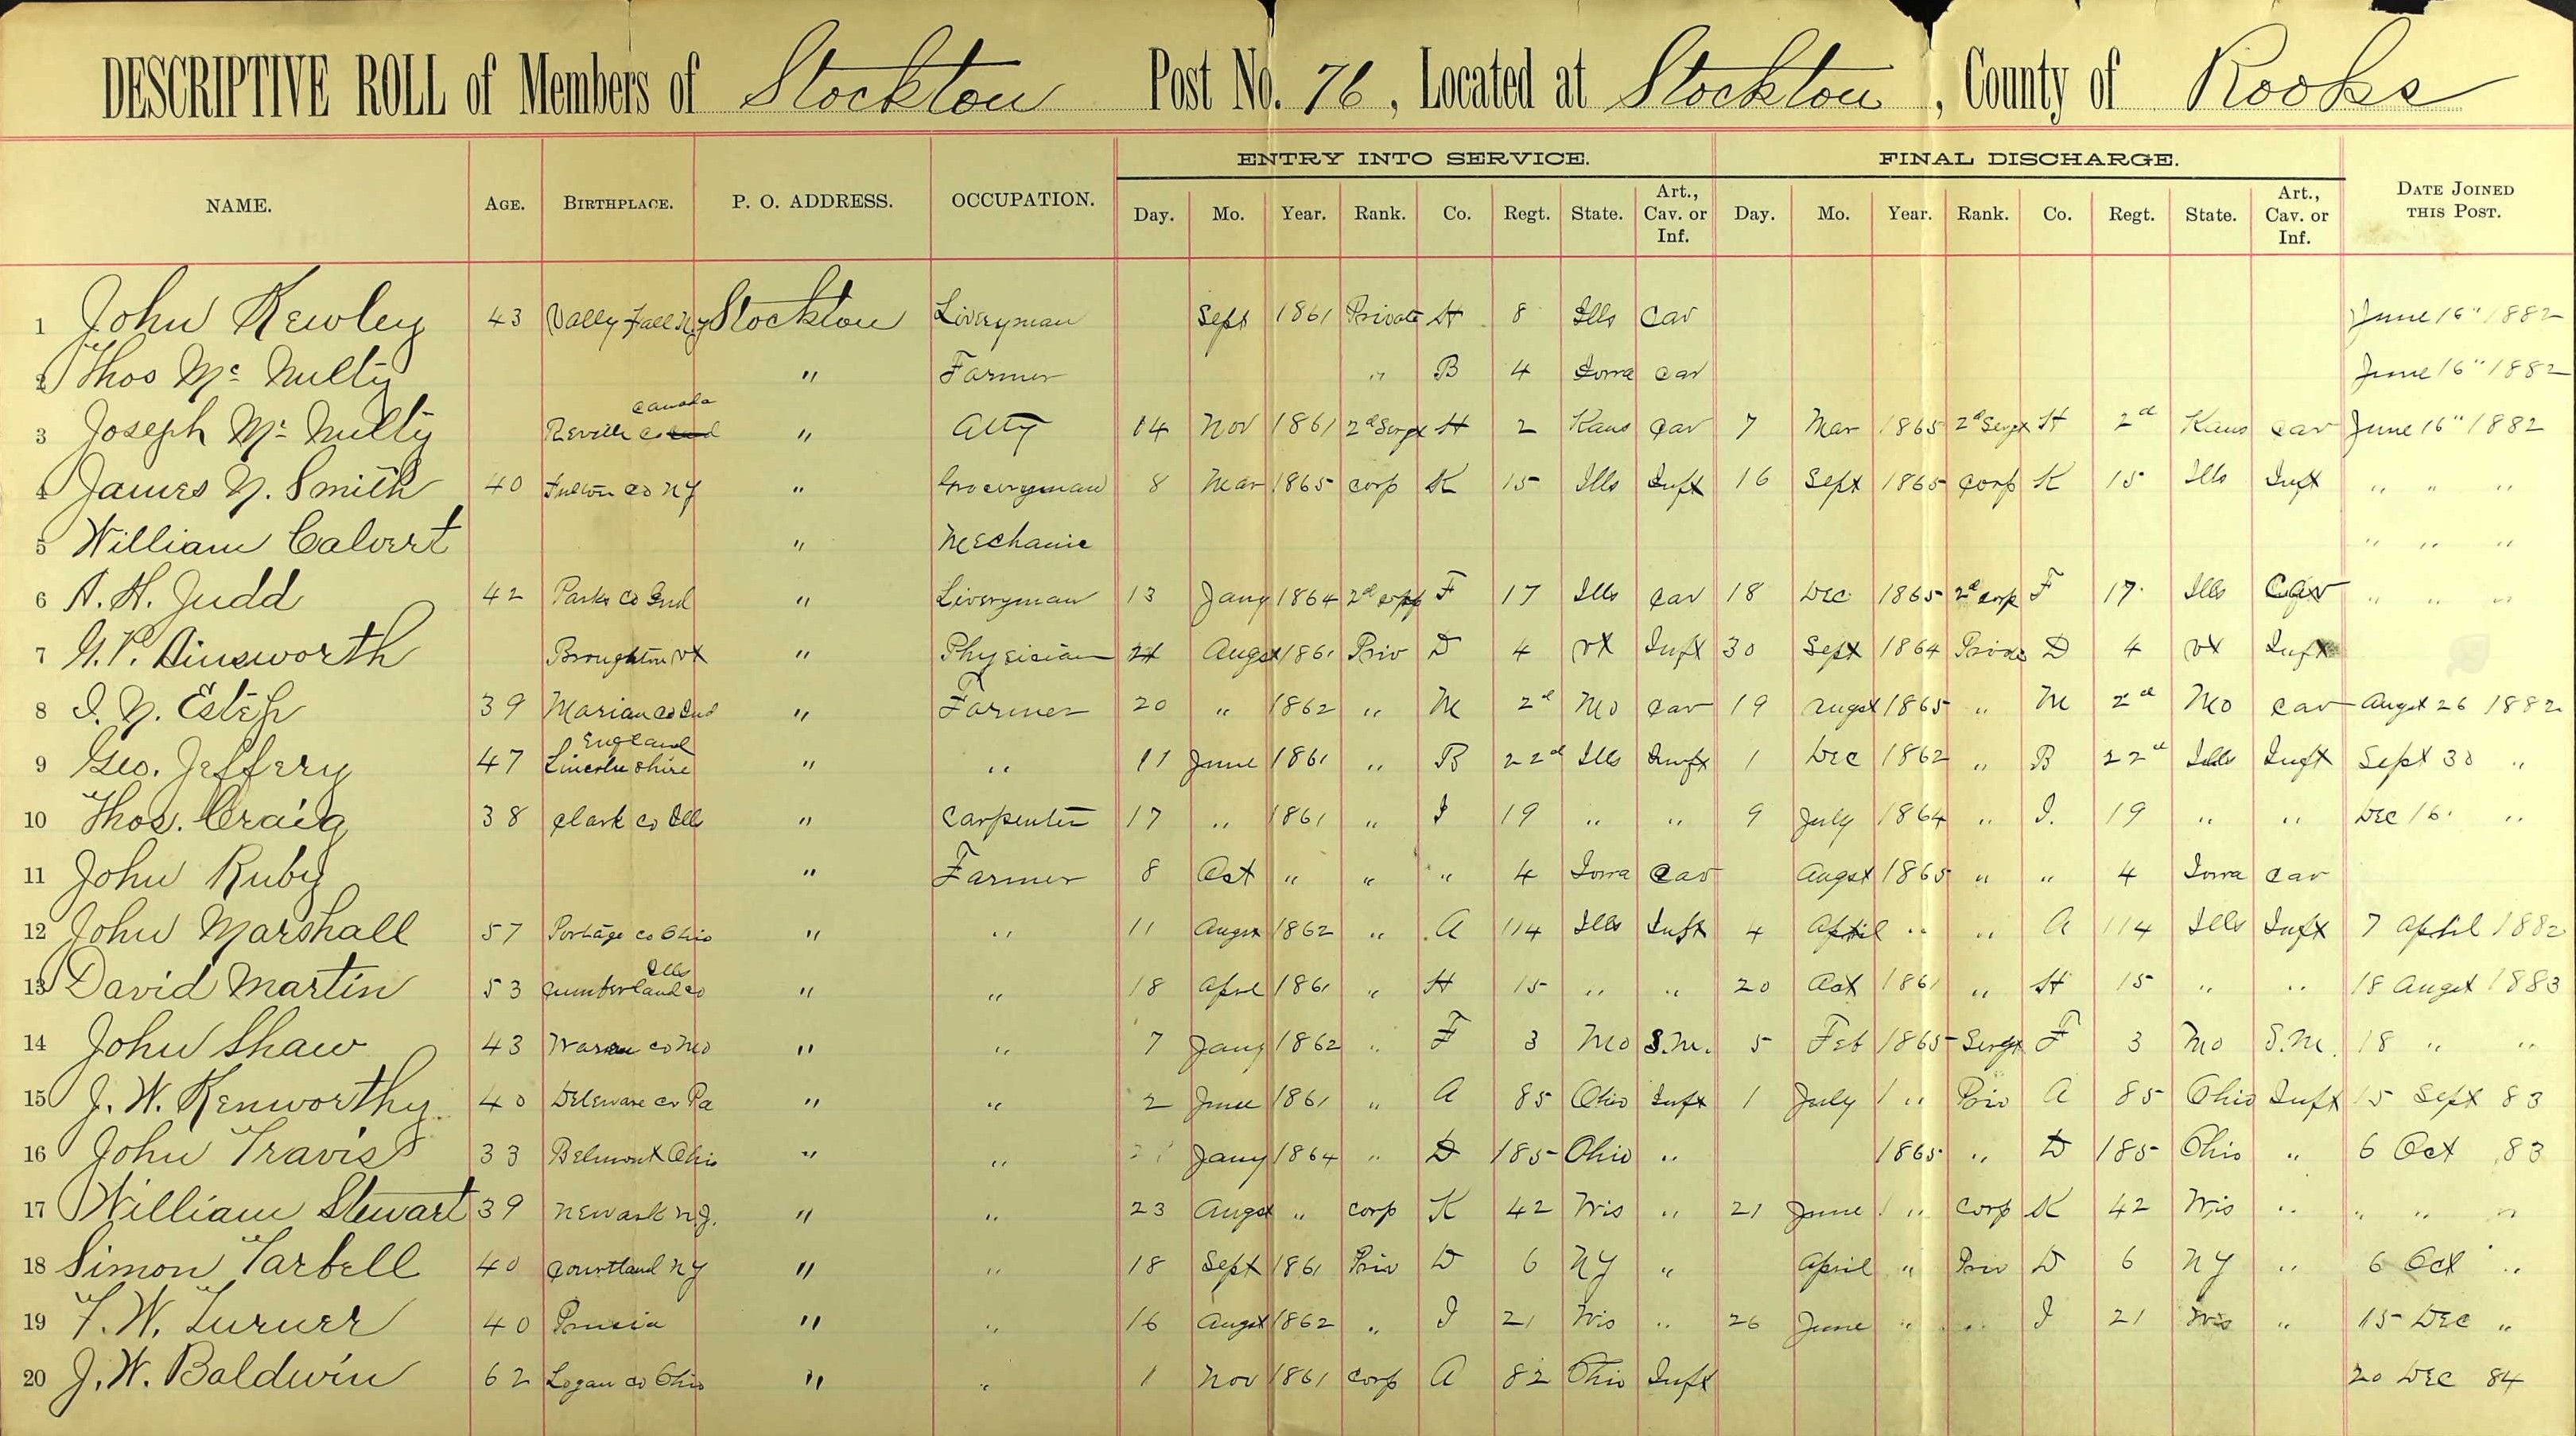 DESCRIPTIVE ROLL of Members of Stockton Post No. 76, Located at Stockton, County of Rooks
ENTRY INTO SERVICE. FINAL DISCHARGE.
NAME. AGE. BIRTHPLACE. P. O. ADDRESS. OCCUPATION. Day. Mo. Year. Rank. Co. Regt. State. Art., Cav. or Inf. Day. Mo. Year. Rank. Co. Regt. State. Art., Cav. or Inf. DATE JOINED THIS POST.
1 John Kewley 43 Vally Fall NY Stockton Liveryman Sept 1861 Private H 8 Ills Cav June 16" 1882
2 Thos Mc Nulty " Farmer " B 4 Iowa Cav June 16" 1882
Canada
3 Joseph Mc Nulty Reville Co " Atty 14 Nov 1861 2d Sergt H 2 Kans Cav 7 Mar 1865 2d Sergt H 2d Kans Cav June 16" 1882
4 James N. Smith 40 Fulton Co NY " Groceryman 8 Mar 1865 Corp K 15 Ills Inft 16 Sept 1865 Corp K 15 Ills Inft " " "
5 William Calvert " Mechanic " " "
6 A. H. Judd 42 Parks Co Ind " Liveryman 13 Jany 1864 2d Corp F 17 Ills Cav 18 Dec 1865 2d Corp F 17 Ills Cav " " "
7 G. P. Ainsworth Broughton Vt " Physician 21 Augst 1861 Priv D 4 Vt Inft 30 Sept 1864 D 4 Vt Inft
8 I. N. Estep 39 Marian Co Ind " Farmer 20 " 1862 " M 2d Mo Cav 19 Augst 1865 " M 2d Mo Cav Augst 26 1882
England
9 Geo. Jeffery 47 Lincoln Shire " " 11 June 1861 " B 22d Ills Inft 1 Dec 1862 " B 22d Ills Inft Sept 30 "
10 Thos. Craig 38 Clark Co Ills " Carpenter 17 " 1861 " I 19 " " 9 July 1864 " I. 19 " " Dec 16 "
11 John Ruby " Farmer 8 Oct " " " 4 Iowa Cav Augst 1865 " " 4 Iowa Cav
12 John Marshall 57 Portage Co Ohio " " 11 Augst 1862 " A 114 Ills Inft 4 April " " A 114 Ills Inft 7 April 1882
Ills
13 David Martin 53 Cumberland Co " " 18 Aprl 1861 " H 15 " " 20 Oct 1861 " H 15 " " 18 Augst 1883
14 John Shaw 43 Warren Co Mo " " 7 Jany 1862 " F 3 Mo S.M. 5 Feb 1865 Sergt F 3 Mo S.M. 18 " "
15 J. W. Kenworthy 40 Deleware Co Pa " " 2 June 1861 " A 85 Ohio Inft 1 July " Priv A 85 Ohio Inft 15 Sept 83
16 John Travis 33 Belmont Ohio " " Jany 1864 " D 185 Ohio " 1865 " D 185 Ohio " 6 Oct 83
17 William Stewart 39 Newark N.J. " " 23 Augst " Corp K 42 Wis " 21 June " Corp K 42 Wis " " " "
18 Simon Tarbell 40 Courtland NY " " 18 Sept 1861 Priv D 6 NY " April " Priv D 6 NY " 6 Oct "
19 F. W. Turner 40 Prusia " " 16 Augst 1862 " I 21 Wis " 26 June " " I 21 Wis " 15 Dec "
20 J. W. Baldwin 62 Logan Co Ohio " " 1 Nov 1861 Corp A 82 Ohio Inft 20 Dec 84